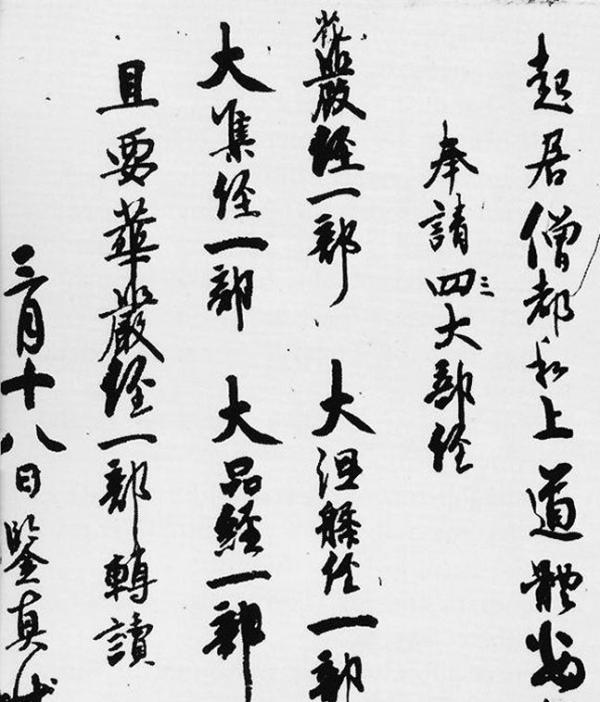 起居僧都和上道體
奉請四三大部經
花嚴經一部 大涅槃經一部
大集經一部 大品經一部
且要華嚴經一部轉讀
三月十八日鑒真狀